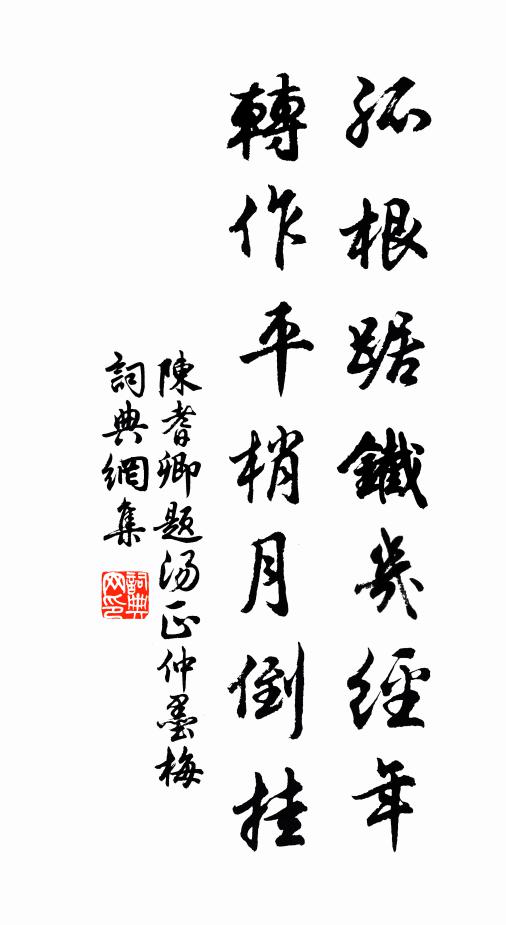 孤根踞鐵幾經年
轉作平梢月倒挂
陳耆卿題湯正仲墨梅
詞典網集
詞典网印